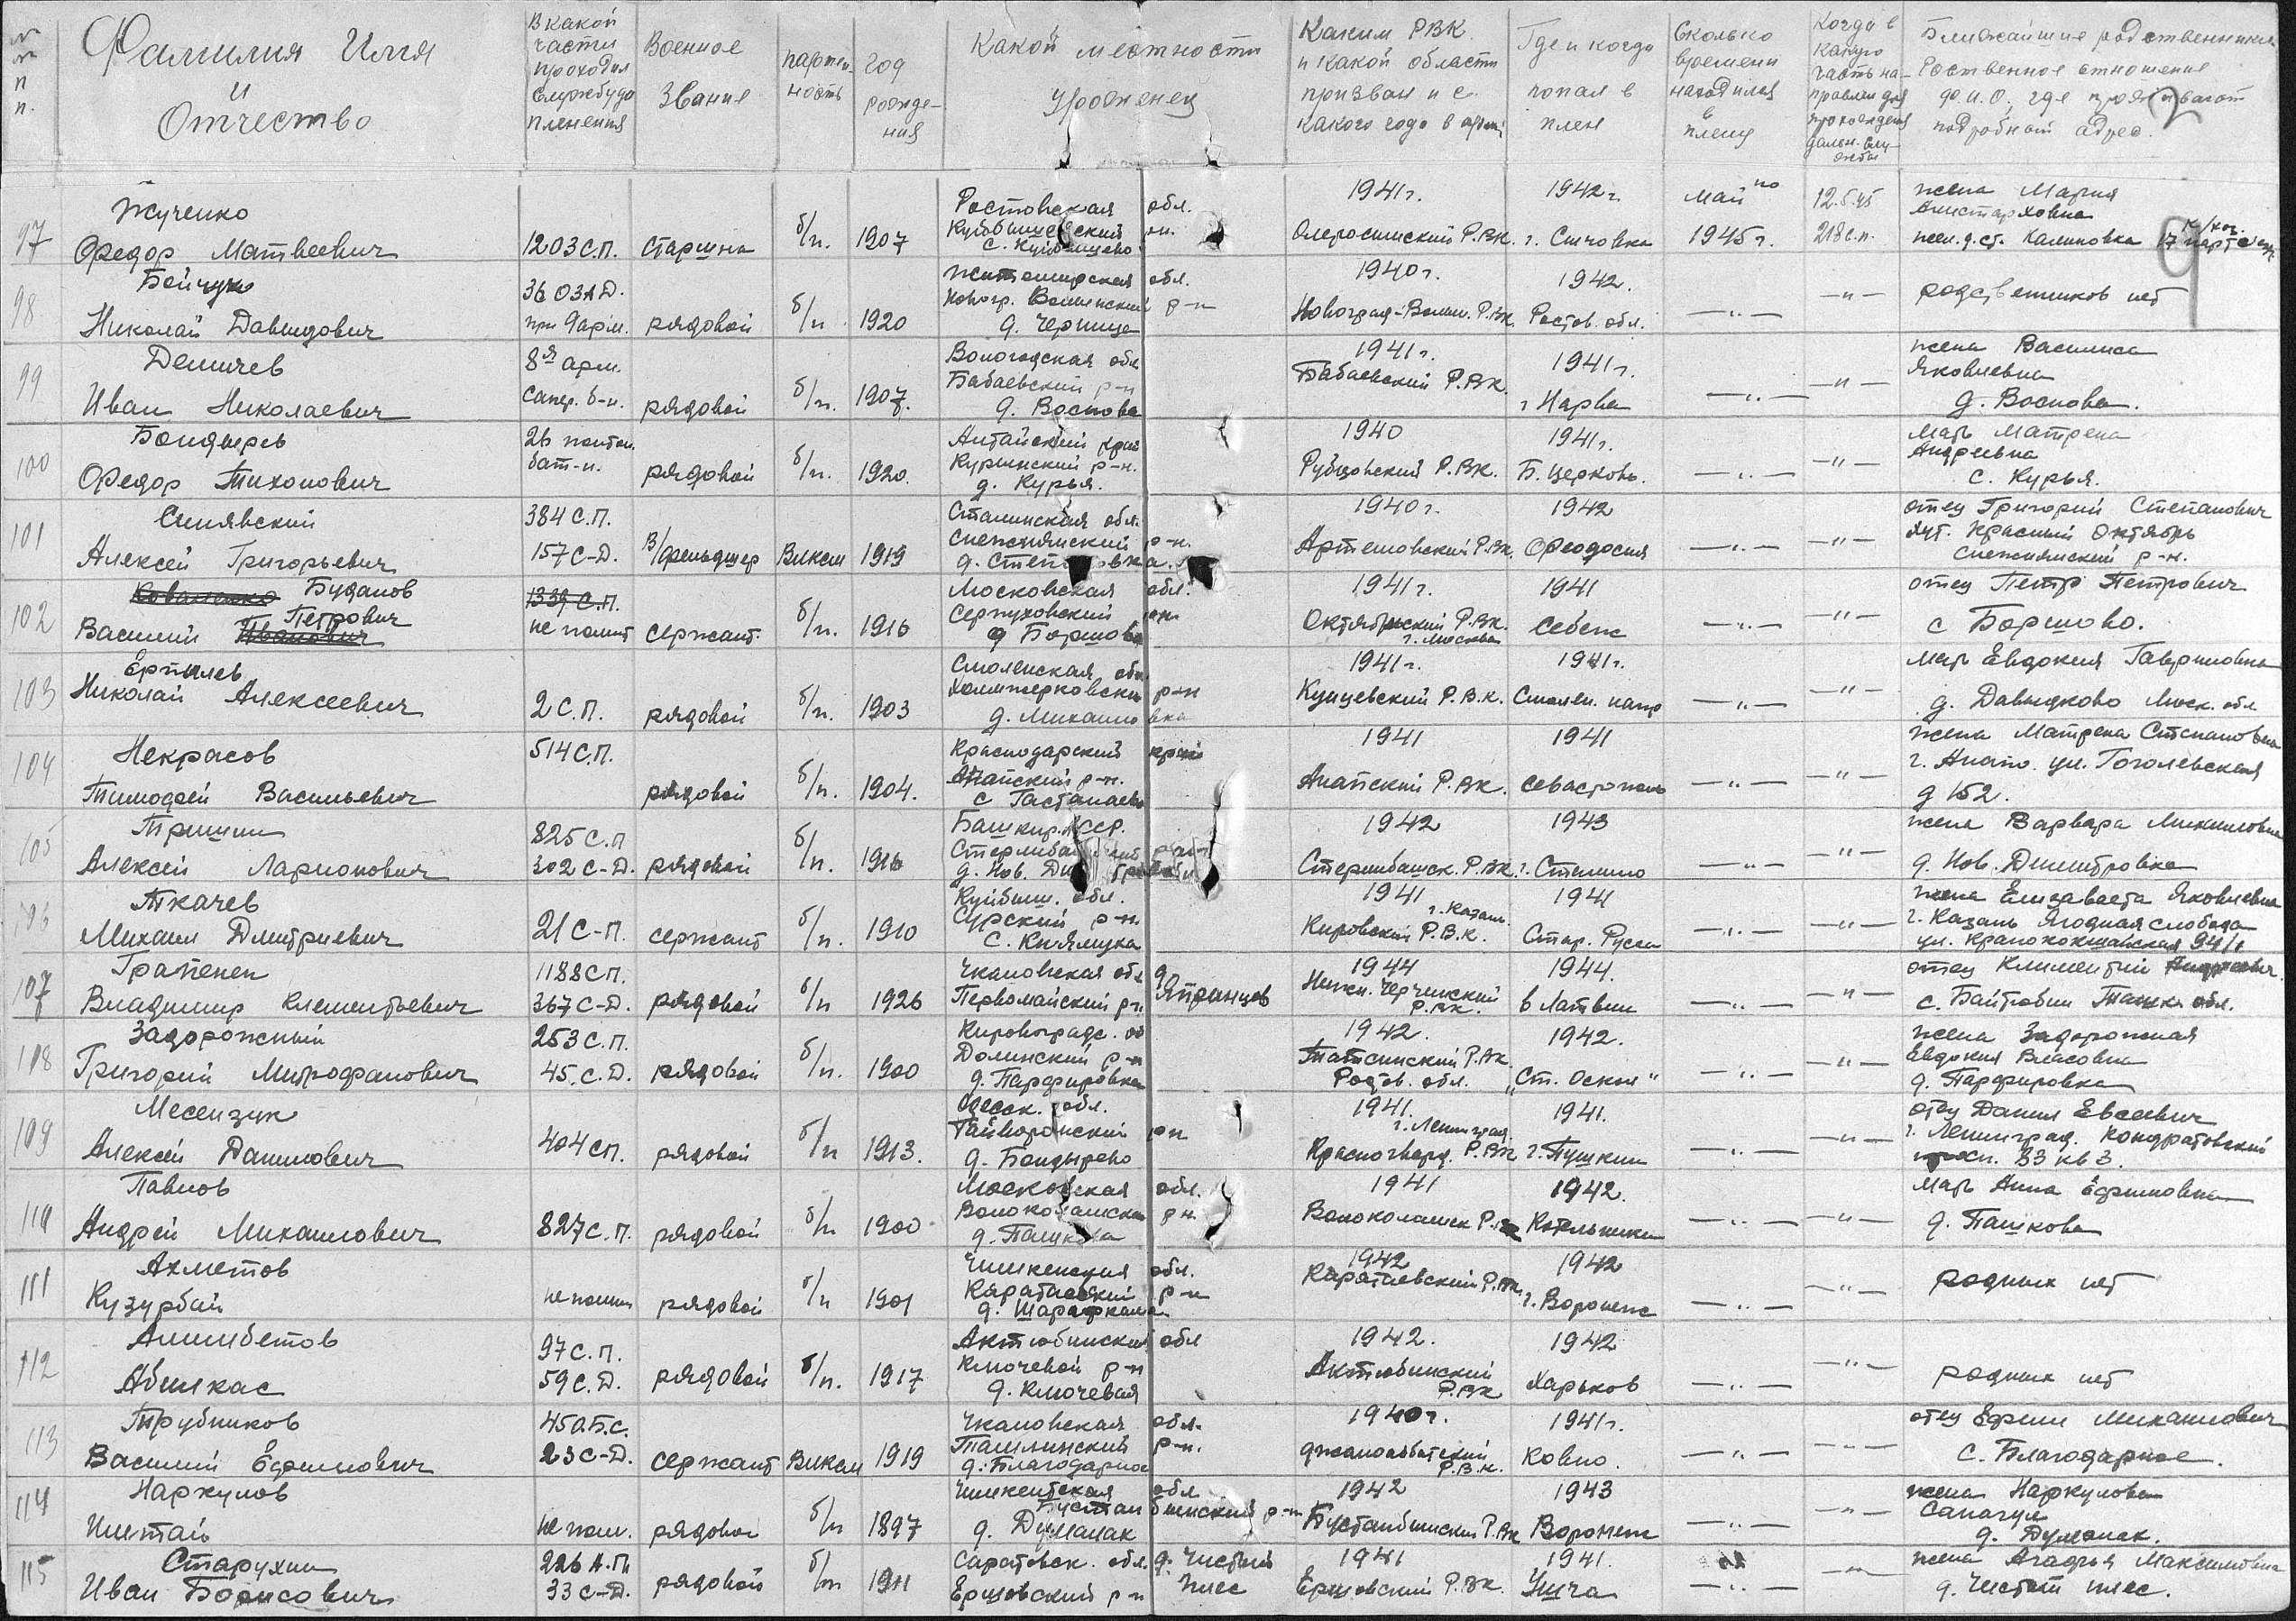 №№ п п.
Фамилия Имя и Отчество
В какой части проходил службу до пленения
Военное звание
партийность
год рождения
Какой местности уроженец
Каким РВК и какой области призван и с какого года в арм
Где и когда попал в плен
Сколько времени находился в плену
Когда в какую часть направлен для прохождения дальн. службы
Ближайшие родственники Роственное отношение ф.и.о., где проживают подробный адрес.
97
Жученко
Федор Матвеевич
1203 С.П.
старшина
б/п.
1907
Ростовская обл.
Куйбышевский рн.
с. Куйбышево
1941 г.
Р.В.К.
1942 г.
г. Сычовка
май по
1945 г.
12.5.45
218 с.п.
жена Мария
Аристарховна
жел.д.ст. Калиновка
98
Бойчук
Николай Давыдович
36 ОЗАД.
при 9 арм.
рядовой
б/п
1920
Житомирская обл.
Новогр. Волынский р-н
1940 г.
Новоград-Волын. Р.В.К.
1942.
Ростов. обл.
—"—
—"—
родственников нет
99
Демичев
Иван Николаевич
8я арм.
сапер. б-н.
рядовой
б/п.
1907.
Вологодская обл
Бабаевский р-н
д. Воснова
1941 г.
Бабаевский Р.ВК.
1941 г.
г Нарва
—"—
—"—
жена Василиса
Яковлевна
д. Воснова.
100
Бондырев
Федор Тихонович
26 понтон.
бат-н.
рядовой
б/п.
1920.
Алтайский край
Курьинский р-н.
д. Курья.
1940
Рубцовский Р.ВК.
1941 г.
Б. Церковь.
—"—
—"—
мать Матрена
Андреевна
с. Курья.
101
Синявский
Алексей Григорьевич
384 С.П.
157 С-Д.
в/фельдшер
Влксм
1919
Сталинская обл.
Снежнянский р-н.
д. Степановка.
1940 г.
Артемовский Р.ВК.
1942
Феодосия
—"—
—"—
отец Григорий Степанович
хут. Красный Октябрь
Снежнянский р-н.
102
Коваленко Буданов
Петрович
Василий Иванович
1339 С.П.
не помнит
сержант.
б/п.
1916
Московская обл.
Серпуховский рн
д Боршова
1941 г.
Октябрьский Р.ВК.
г. Москва
1941
Себеж
—"—
—"—
отец Петр Петрович
с Боршово.
103
Ерпылев
Николай Алексеевич
2 С.П.
рядовой
б/п.
1903
Смоленская обл.
Холмжерковский р-н
д. Михайловка
1941 г.
Кунцевский Р.В.К.
1941 г.
Смолен. напр
—"—
—"—
мать Евдокия Гавриловна
д. Давыдково Моск. обл
104
Некрасов
Тимофей Васильевич
514 С.П.
рядовой
б/п.
1904.
Краснодарский край
Анапский р-н.
1941
Анапский Р.ВК.
1941
Севастополь
—"—
—"—
жена Матрена Степановна
г. Анапа. ул. Гоголевская
д 152.
105
Тришин
Алексей Ларионович
825 С.П
302 С-Д.
рядовой
б/п.
1916
Башкир. ССР.
д. Нов. Дмитровка
1942
Стерлибашск. Р.ВК.
1943
—"—
—"—
жена Варвара Михайловна
д. Нов. Дмитровка
106
Ткачев
Михаил Дмитриевич
21 С-П.
сержант
б/п.
1910
Куйбыш. обл.
Сурский р-н.
1941
г. Казань.
Кировский Р.В.К.
1941
Стар. Русса
—"—
—"—
жена Елизавета Яковлевна
г. Казань Ягодная слобода
ул. Краснококшайская
107
Владимир Клементьевич
1188 СП.
367 С-Д.
рядовой
б/п
1926
Чкаловская обл
Первомайский рн
1944
Нижн. Черчикский
Р.ВК.
1944.
в Латвии
—"—
—"—
отец Климентий
Ташк. обл.
108
Задорожный
Григорий Митрофанович
253 С.П.
45. С.Д.
рядовой
б/п.
1900
Кировоградс. об
Долинский р-н
д. Парфировка
1942.
Татсинский Р.ВК
Ростов. обл.
1942.
„Ст. Оскол"
—"—
—"—
жена Задорожная
Евдокия Власовна
д. Парфировка
109
Месензук
Алексей Данилович
404 сп.
рядовой
б/п
1913.
Одесск. обл.
Гайворонский рн
д. Бондырево
1941.
г. Ленинград.
Красногвард. Р.ВК
1941.
г. Пушкин
—"—
—"—
отец Данил Евсеевич
г. Ленинград. Кондратовский
просп. 33 кв 3.
110
Павлов
Андрей Михайлович
827 С.П.
рядовой
б/п
1900
Московская обл.
Волоколамский рн
д. Пашкова
1941
Волоколамск Р.ВК
1942.
Котельники
—"—
—"—
мать Анна Ефимовна
д. Пашкова
111
Ахметов
Кузурбай
не помнит
рядовой
б/п
1901
Чимкенская обл.
р-н
1942
1942
г. Воронеж
—"—
—"—
родных нет
112
Алимбетов
Абилкас
97 С.П.
59 С.Д.
рядовой
б/п.
1917
Актюбинская обл
Ключевой р-н
д. Ключевая
1942.
Актюбинский
Р.ВК
1942
Харьков
—"—
—"—
родных нет
113
Трубников
Василий Ефимович
450.Б.С.
23 С-Д.
сержант
Влксм
1919
Чкаловская обл.
Ташлинский р-н.
д. Благодарное
1940 г.
Джалолабатский
Р.В.К.
1941 г.
Ковно.
—"—
—"—
отец Ефим Михайлович
с. Благодарное.
114
Наркулов
не пом.
рядовой
б/п
1897
Чимкентская обл
р-н
д. Думалак
1942
Р.ВК
1943
Воронеж
—"—
—"—
жена Наркулова
Сапагул
д. Думалак.
115
Старухин
Иван Борисович
226 А.П.
33 С-Д.
рядовой
б/п
1911
Саратовск. обл. д. Чистый
Ершовский р-н плес
1941
Ершовский Р.ВК.
1941.
Ушча
—"—
—"—
жена Агафья Максимовна
д. Чистый плес.